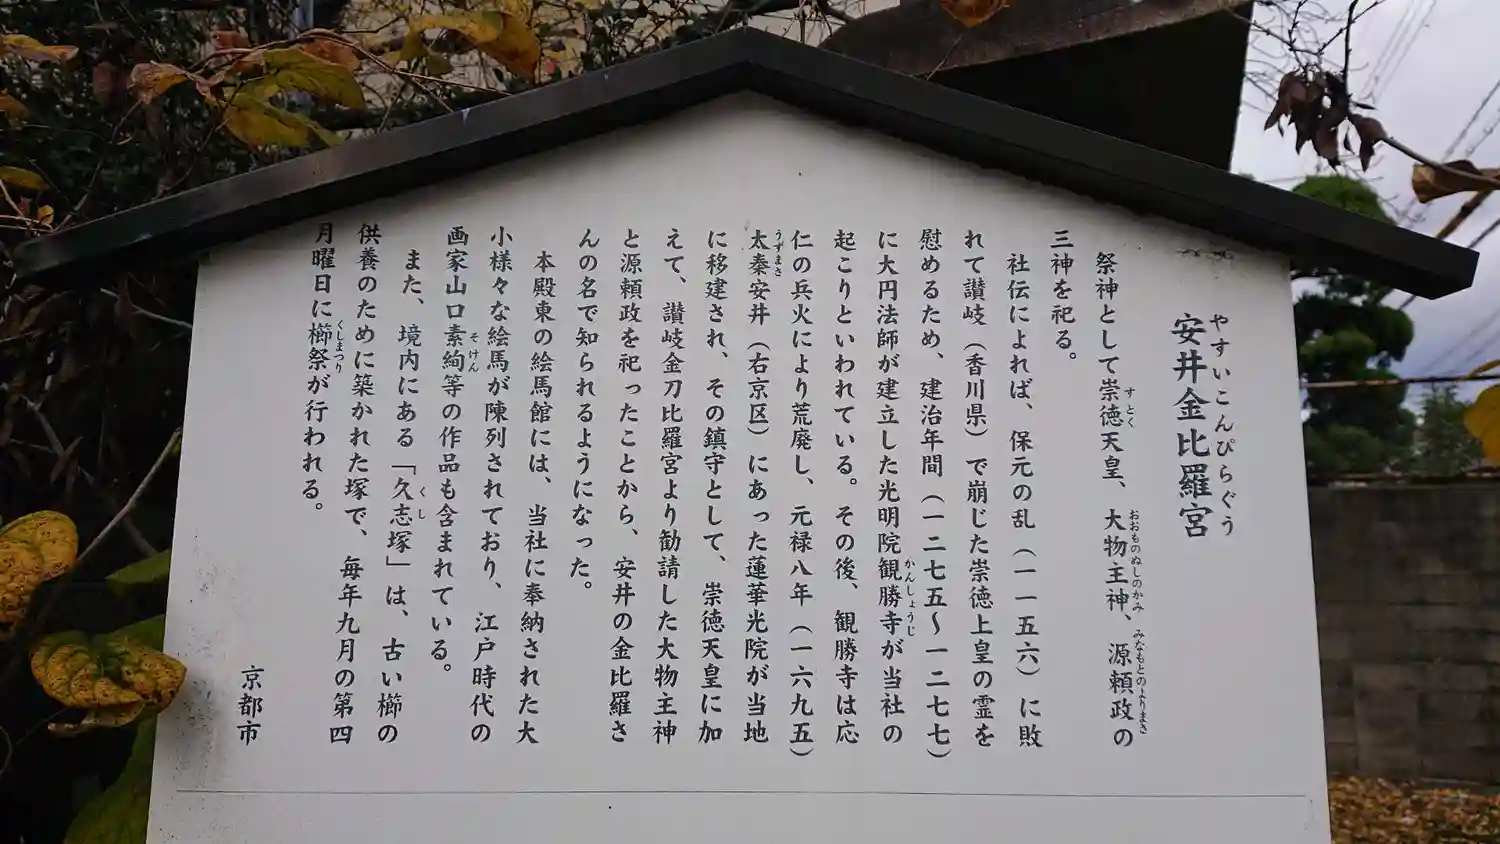 やすいこんぴらぐう
安井金比羅宮
祭神として崇徳天皇、大物主神、源頼政の
すとく
おおものぬしのかみ
みなもとのよりまさ
三神を祀る。
社伝によれば、保元の乱(一一五六)に敗
れて讃岐(香川県)で崩じた崇徳上皇の霊を
慰めるため、建治年間(一二七五〜一二七七)
に大円法師が建立した光明院観勝寺が当社の
かんしょうじ
起こりといわれている。その後、観勝寺は応
仁の兵火により荒廃し、元禄八年(一六九五)
太秦安井(右京区)にあった蓮華光院が当地
うずまさ
に移建され、その鎮守として、崇徳天皇に加
えて、讃岐金刀比羅宮より勧請した大物主神
と源頼政を祀ったことから、安井の金比羅さ
んの名で知られるようになった。
本殿東の絵馬館には、当社に奉納された大
小様々な絵馬が陳列されており、江戸時代の
画家山口素絢等の作品も含まれている。
そけん
また、境内にある「久志塚」は、古い櫛の
くし
供養のために築かれた塚で、毎年九月の第四
月曜日に櫛祭が行われる。
くしまつり
京都市